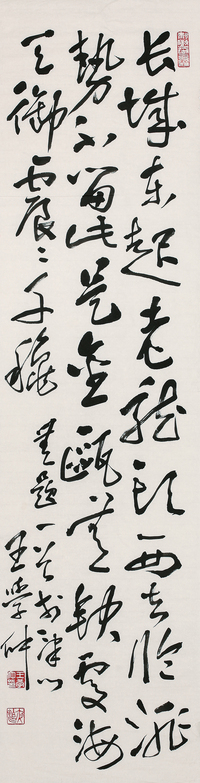 长城东起老龙头西去临洮
势不留此是金瓯无缺处海
天震〻千穐
题一首于津门
王学仲